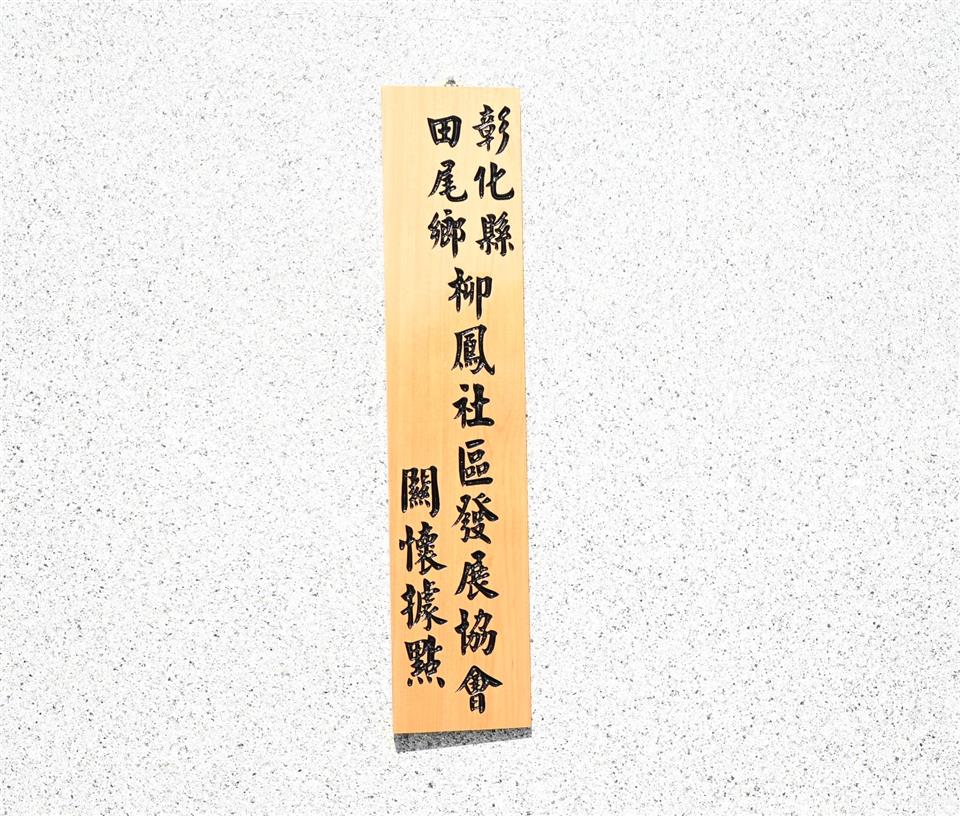 彰化縣
田尾鄉
柳鳳社區發展協會
關懷據點